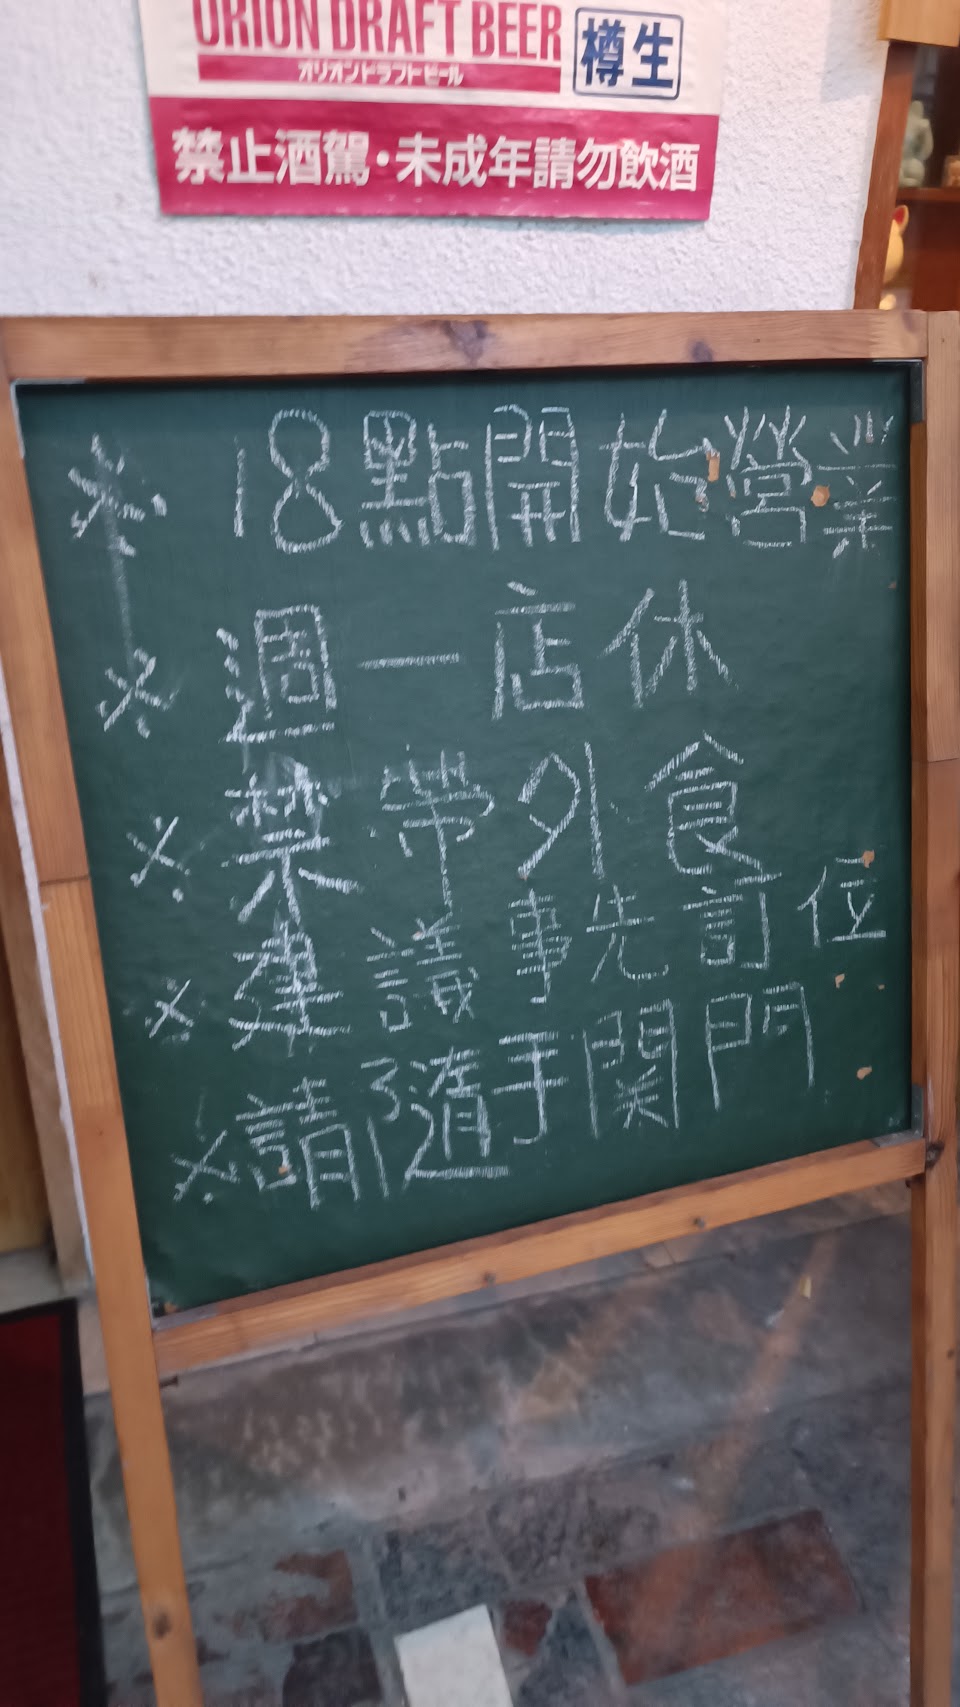 ORION DRAFT BEER 樽生
オリオンドラフトビール
禁止酒駕・未成年請勿飲酒
※ 18點開始營業
※ 週一店休
※ 禁帶外食
※ 建議事先訂位
※ 請隨手関門